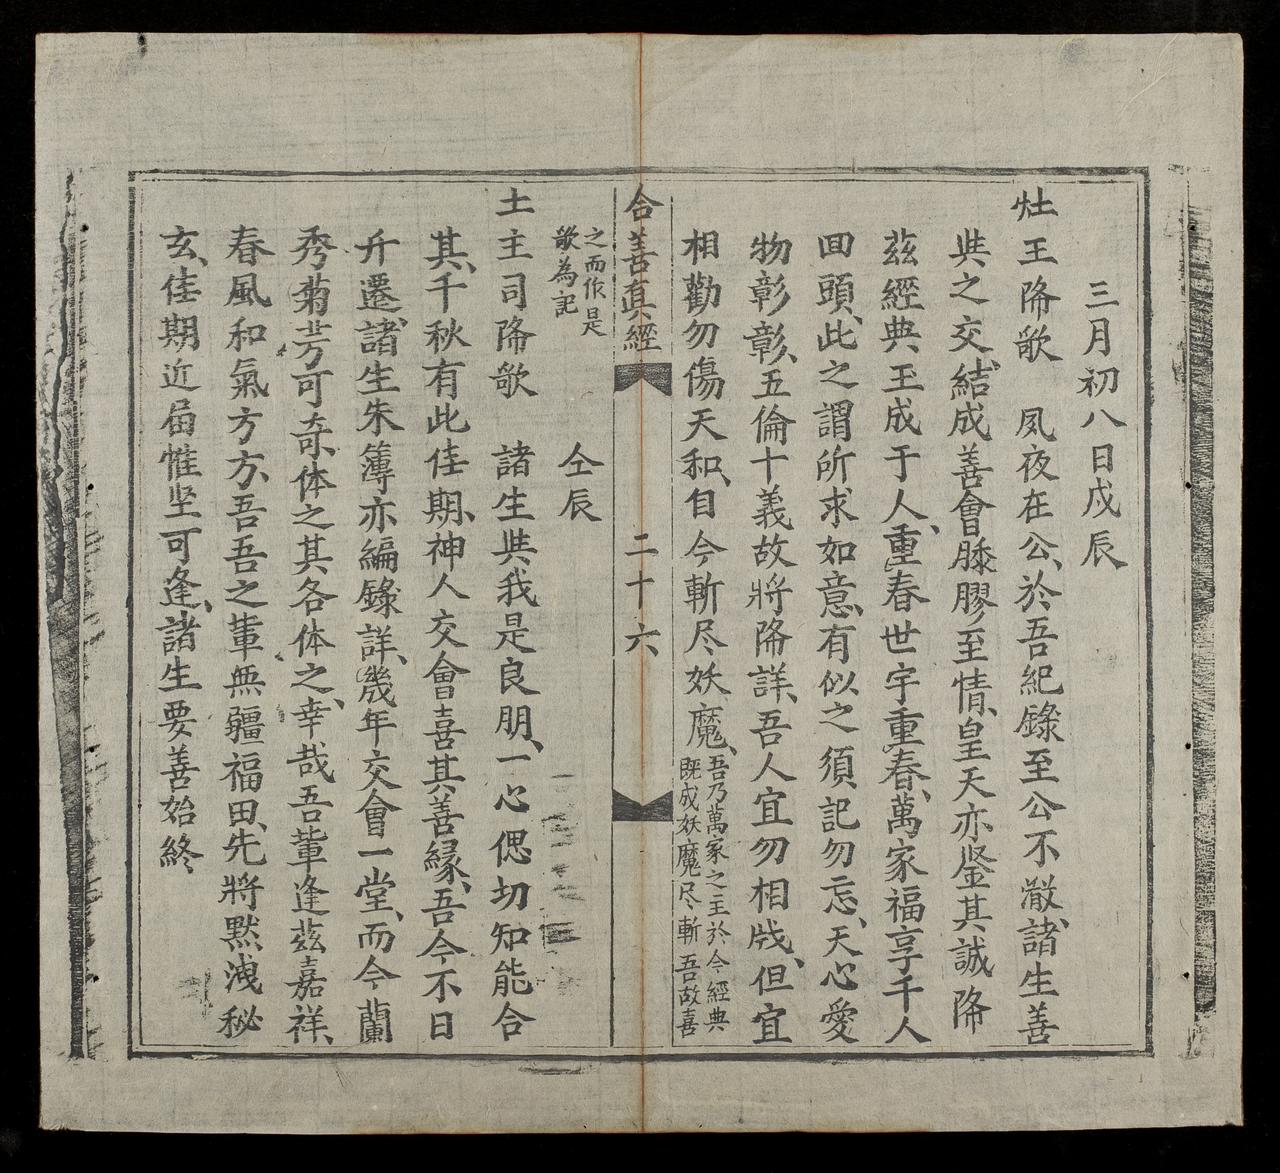 三月初八日戊辰
灶王降歌　夙夜在公、於吾紀錄至公不潵、諸生善
與之交、結成善會膝膠至情、皇天亦鍳其誠降
茲經典玉成于人、重春世宇重春、萬家福享千人
囬頭、此之謂所求如意、有似之須記勿忘、天心愛
物彰彰、五倫十義故將降詳、吾人宜勿相戕、但宜
相勸勿傷天和、自今斬尽妖魔、吾乃萬家之主於今經典
既成妖魔尽斬吾故喜
合善真經　二十六
之而作是
歌為記
仝辰
土主司降歌　諸生與我是良朋、一心偲切知能合
其、千秋有此佳期、神人交會喜其善緣、吾今不日
升遷、諸生朱簿亦編錄詳、幾年交會一堂、而今蘭
秀菊芳可奇、体之其各体之、幸哉吾輩逢茲嘉祥、
春風和氣方方、吾吾之輩無疆福田、先將默洩秘
玄、佳期近屆惟坚可逢、諸生要善始終